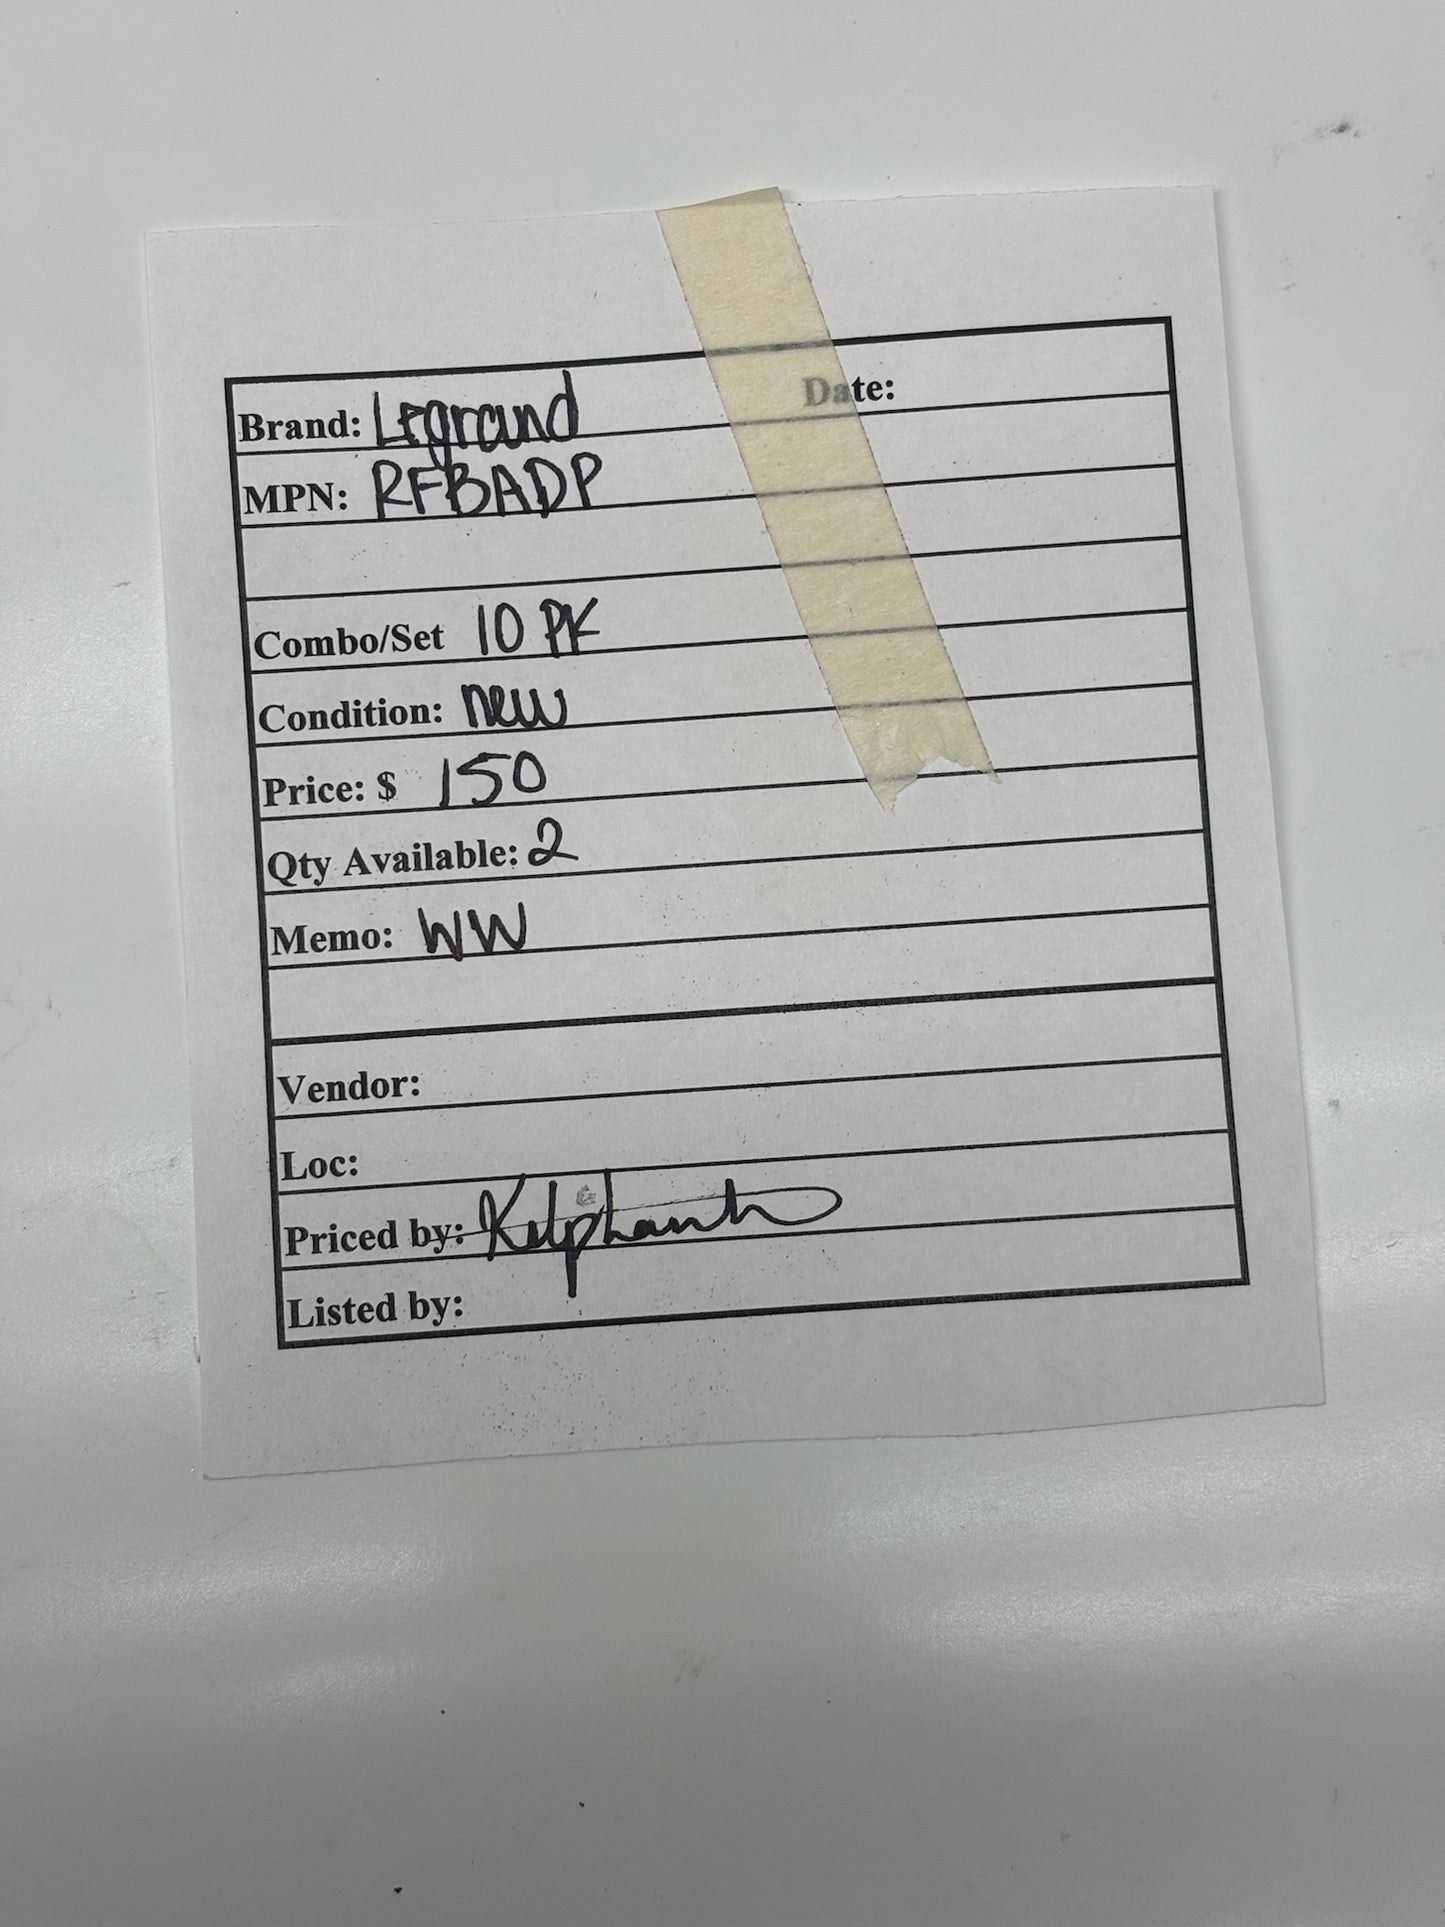 Brand: Legrand Date:
MPN: RFBADP
Combo/Set 10 PK
Condition: new
Price: $ 150
Qty Available: 2
Memo: WW
Vendor:
Loc:
Priced by:
Listed by: